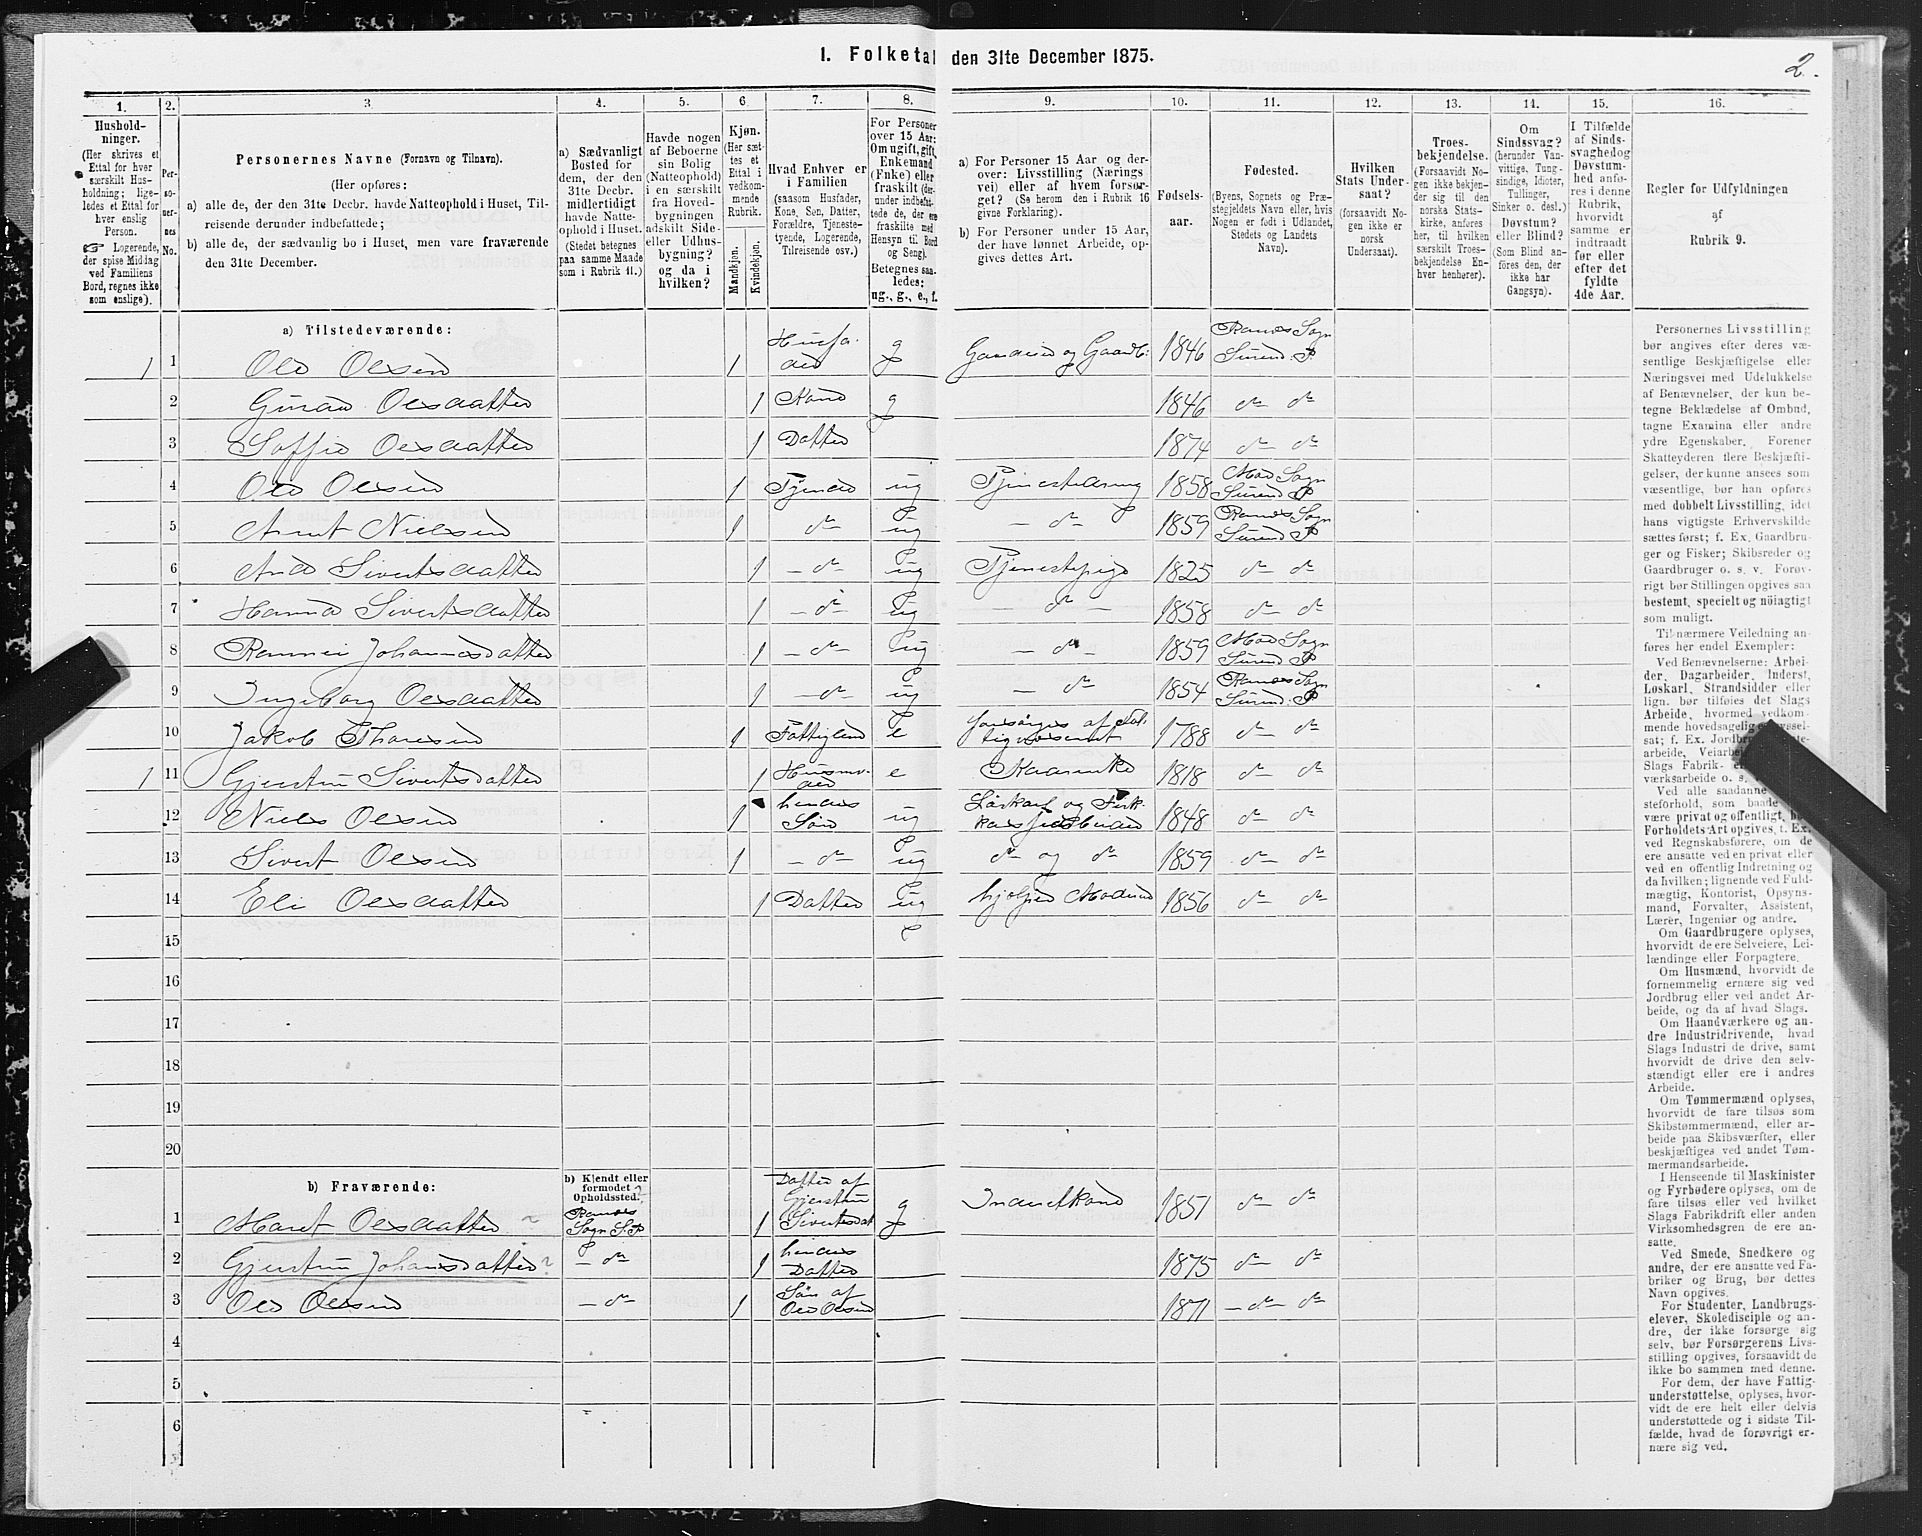 I. Folketal den 31te December 1875.
2.
1. 2. 3 4. 5. 6 7. 8. 9. 10. 11. 12. 13. 14. 15. 16.
Hushold-
ninger.
(Her skrives et
Ettal for hver
særskilt Hus-
holdning; lige-
ledes et Ettal for
hver enslig
Person.
☞ Logerende,
der spise Middag
ved Familiens
Bord, regnes ikke
som enslige).
Per-
so-
ner-
nes
No.
Personernes Navne (Fornavn og Tilnavn).
(Her opføres:
a) alle de, der den 31te Decbr. havde Natteophold i Huset, Til-
reisende derunder indbefattede;
b) alle de, der sædvanlig bo i Huset, men vare fraværende
den 31te December.
a) Sædvanligt
Bosted for
dem, der den
31te Decbr.
midlertidigt
havde Natte-
ophold i Huset.
(Stedet betegnes
paa samme Maade
som i Rubrik 11.)
Havde nogen
af Beboerne
sin Bolig
(Natteophold)
i en særskilt
fra Hoved-
bygningen
adskilt Side-
eller Udhus-
bygning?
og da i
hvilken?
Kjøn.
(Her sæt-
tes et
Ettal i
vedkom-
mende
Rubrik.
Mandkjøn.
Kvindekjøn.
Hvad Enhver er
i Familien
(saasom Husfader,
Kone, Søn, Datter,
Forældre, Tjeneste-
tyende, Logerende,
Tilreisende osv.)
For Personer
over 15 Aar:
Om ugift, gift,
Enkemand
(Enke) eller
fraskilt (der-
under indbefat-
tede de, der ere
fraskilte med
Hensyn til Bord
og Seng).
Betegnes saa-
ledes:
ug., g., e., f.
a) For Personer 15 Aar og der-
over: Livsstilling (Nærings
vei) eller af hvem forsør-
get? (Se herom den i Rubrik 16
givne Forklaring).
b) For Personer under 15 Aar,
der have lønnet Arbeide, op-
gives dettes Art.
Fødsels-
aar.
Fødested.
(Byens, Sognets og Præ-
stegjeldets Navn eller, hvis
Nogen er født i Udlandet,
Stedets og Landets
Navn).
Hvilken
Stats Under-
saat?
(forsaavidt No-
gen ikke er
norsk
Undersaat).
Troes-
bekjendelse.
(Forsaavidt No-
gen ikke bekjen-
der sig til den
norske Stats-
kirke, anføres
her, til hvilken
særskilt Troes-
bekjendelse En-
hver henhører).
Om
Sindssvag?
(herunder Van-
vittige, Tung-
sindige, Idioter,
Tullinger,
Sinker o. desl.)
Døvstum?
eller Blind?
(Som Blind an-
føres den, der
ikke har
Gangsyn).
I Tilfælde
af Sinds-
svaghed og
Døvstum-
hed anfø-
res i denne
Rubrik,
hvorvidt
samme er
indtraadt
før eller
efter det
fyldte
4de Aar.
Regler for Udfyldningen
af
Rubrik 9.
a) Tilstedeværende:
1 1 Ole Olsen 1 Husfa-
der g Gaardeier og Gaardb: 1846 Ranes Sogn
Surend. P.
2 Gurine Olsdatter 1 Kone g 1846 do do
3 Soffie Olsdatter 1 Datter 1874 do do
4 Ole Olsen 1 Tjener ug Tjenestedreng 1858 Moe Sogn
Surend P
5 Arnt Nielsen 1 do ug - do 1859 Ranes Sogn
Surend P
6 Ane Sivertsdatter 1 - do ug Tjenestepige 1825 do do
7 Hanna Sivertsdatter 1 - do ug - do - 1858 do do
8 Rannei Johannesdatter 1 - do - ug - do - 1859 Moe Sogn
Surend P
9 Ingeborg Olsdatter 1 - do - ug - do 1854 Ranes Sogn
Surend. P
10 Jakob Thoresen 1 Fattiglem e forsørges af Fat-
tigvæsenet 1788 do do
1 11 Gjertrun Sivertsdatter 1 Husmo-
der e Kaarenke 1818 do do
12 Niels Olsen 1 hendes
Søn ug Løskarl og Fisk-
1848 do do
13 Sivert Olsen 1 - do - ug do og do 1859 do do
14 Eli Olsdatter 1 Datter ug hjelper Moderen 1856 do do
15
16
17
18
19
20
b) Fraværende:
b) Kjendt eller
formodet
Opholdssted.
1 Maret Olsdatter ? Ranes
Sogn S. P 1 Datter af
Gjertrun
Sivertsdat g Inderstkone 1851 do do
2 Gjertrun Johansdatter ? - do 1 hendes
Datter 1875 do do
3 Ole Olsen - do 1 Søn af
Ole Olsen 1871 - do do
4
5
6
Personernes Livsstilling
bør angives efter deres væ-
sentlige Beskjæftigelse eller
Næringsvei med Udelukkelse
af Benævnelser, der kun be-
tegne Beklædelse af Ombud,
tagne Examina eller andre
ydre Egenskaber. Forener
Skatteyderen flere Beskjæfti-
gelser, der kunne ansees som
væsentlige, bør han opføres
med dobbelt Livsstilling, idet
hans vigtigste Erhvervskilde
sættes først; f. Ex. Gaardbru-
ger og Fisker; Skibsreder og
Gaardbruger o. s. v. Forøv-
rigt bør Stillingen opgives saa
bestemt, specielt og nöiagtigt
som muligt.
Til nærmere Veiledning an-
føres her endel Exempler:
Ved Benævnelserne: Arbei-
der, Dagarbeider, Inderst,
Løskarl, Strandsidder eller
lign. bør tilføies det Slags
Arbeide, hvormed vedkom-
mende hovedsagelig
sat; f. Ex.
arbeide,
Slags Fabrik-
værksarbeide o. s.
Ved alle saadanne
steforhold, som baade
være privat og offentligt,
Forholdets Art opgives, t. Ex.
ved Regnskabsførere, om de
ere ansatte ved en privat eller
ved en offentlig Indretning og
da hvilken; lignende ved Fuld-
mægtig, Kontorist, Opsyns-
mand, Forvalter, Assistent,
Lærer, Ingeniør og andre.
Om Gaardbrugere oplyses,
hvorvidt de ere Selveiere, Lei-
lændinge eller Forpagtere.
Om Husmænd, hvorvidt de
fornemmelig ernære sig ved
Jordbrug eller ved andet Ar-
beide, og da af hvad Slags.
Om Haandværkere og an-
dre Industridrivende, hvad
Slags Industri de drive, samt
hvorvidt de drive den selv-
stændigt eller ere i andres
Arbeide.
Om Tømmermænd oplyses,
hvorvidt de fare tilsøs som
Skibstømmermænd, eller ar-
beide paa Skibsværfter, eller
beskjæftiges ved andet Tøm-
mermandsarbeide.
I Henseende til Maskinister
og Fyrbødere oplyses, om de
fare tilsøs eller ved hvilket
Slags Fabrikdrift eller anden
Virksomhedsgren de ere an-
satte.
Ved Smede, Snedkere og
andre, der ere ansatte ved Fa-
briker og Brug, bør dettes
Navn opgives.
For Studenter, Landbrugs-
elever, Skoledisciple og an-
dre, der ikke forsørge sig
selv, bør Forsørgerens Livs-
stilling opgives, forsaavidt de
ikke bo sammen med denne.
For dem, der have Fattig-
understøttelse, oplyses, hvor-
vidt de ere helt eller delvis
understøttede og i sidste Til-
fælde, hvad de forøvrigt er-
nære sig ved.